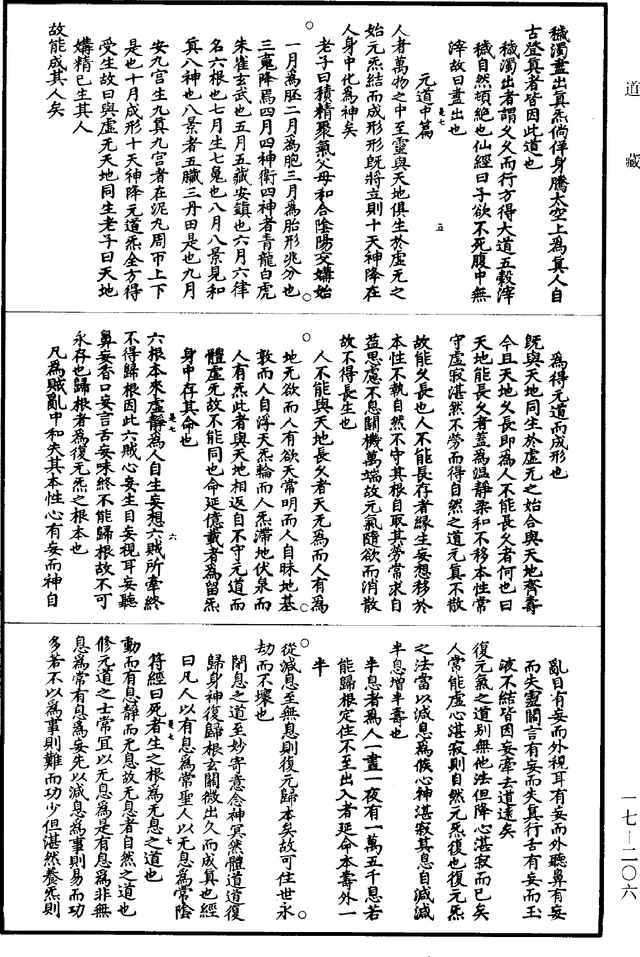 道藏
穢濁盡出真炁倘佯身騰太空上為真人自
古登真者皆因此道也
穢濁出者謂久久而行方得大道五穀滓
穢自然頓絶也仙經曰子欲不死腹中無
滓故曰盡出也
是七 五
元道中篇
人者萬物之中至靈與天地俱生於虛无之
始元炁結而成形形既將立則十天神降在
人身中化為神矣
老子曰積精聚氣父母和合陰陽交媾始
一月為胚二月為胞三月為胎形兆分也
三䰟降焉四月四神衛四神者青龍白虎
朱雀玄武也五月五藏安鎮也六月六律
名六根也七月生七䰟也八月八景見和
真八神也八景者五臟三丹田是也九月
安九宮生九真九宮者在泥九周帀上下
是也十月成形十天神降元道炁全方得
受生故曰與虛无天地同生老子曰天地
媾精已生其人
故能成其人矣
為得元道而成形也
既與天地同生於虛无之始合與天地齊壽
今且天地久長即為人不能長久者何也曰
天地能長久者蓋為溫靜柔和不移本性常
守虛寂湛然不勞而得自然之道元真不散
故能久長也人不能長存者緣生妄想移於
本性不執自然不守其根自取其勞常求自
益思慮不息關機萬端故元氣隨欲而消散
故不得長生也
人不能與天地長久者天无為而人有為
地无欲而人有欲天常明而人自昧地基
敦而人自浮天炁輪而人炁滯地伏泉而
人有炁此者與天地相返自不守元道而
體虛无故不能同也命延億載者為留炁
身中存其命也
是七 六
六根本來虛靜為人自生妄想六賊所牽終
不得歸根因此六賊心妄生目妄視耳妄聽
鼻妄香口妄言舌妄味終不能歸根故不可
永存也歸根者為復元炁之根本也
凡為賊亂中和失其本性心有妄而神自
亂目有妄而外視耳有妄而外聽鼻有妄
而失靈關言有妄而失真行舌有妄而玉
液不結皆因妄牽去道遠矣
復元氣之道別無他法但降心湛寂而已矣
人常能虛心湛寂則自然元炁復也復元炁
之法當以減息為候心神湛寂其息自減減
半息增半壽也
半息者為人一晝一夜有一萬五千息若
能歸根定住不至出入者延命本壽外一
半
從減息至無息則復元歸本矣故可住世永
劫而不壞也
閉息之道至妙寄意念神冥然體道道復
歸身神復歸根玄關微出久而成真也經
曰凡人以有息為常聖人以无息為常陰
是七 七
符經曰死者生之根為无息之道也
動而有息靜而无息故无息者自然之道也
修元道之士常宜以无息為是有息為非無
息為常有息為妄先以減息為事則易而功
多若不以為事則難而功少但湛然養炁則
一七—二〇六